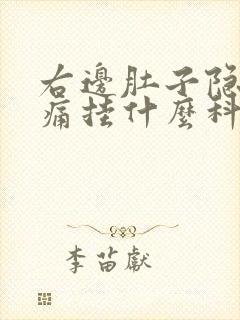 右邊肚子隐
痛挂什麼科
李苗獻